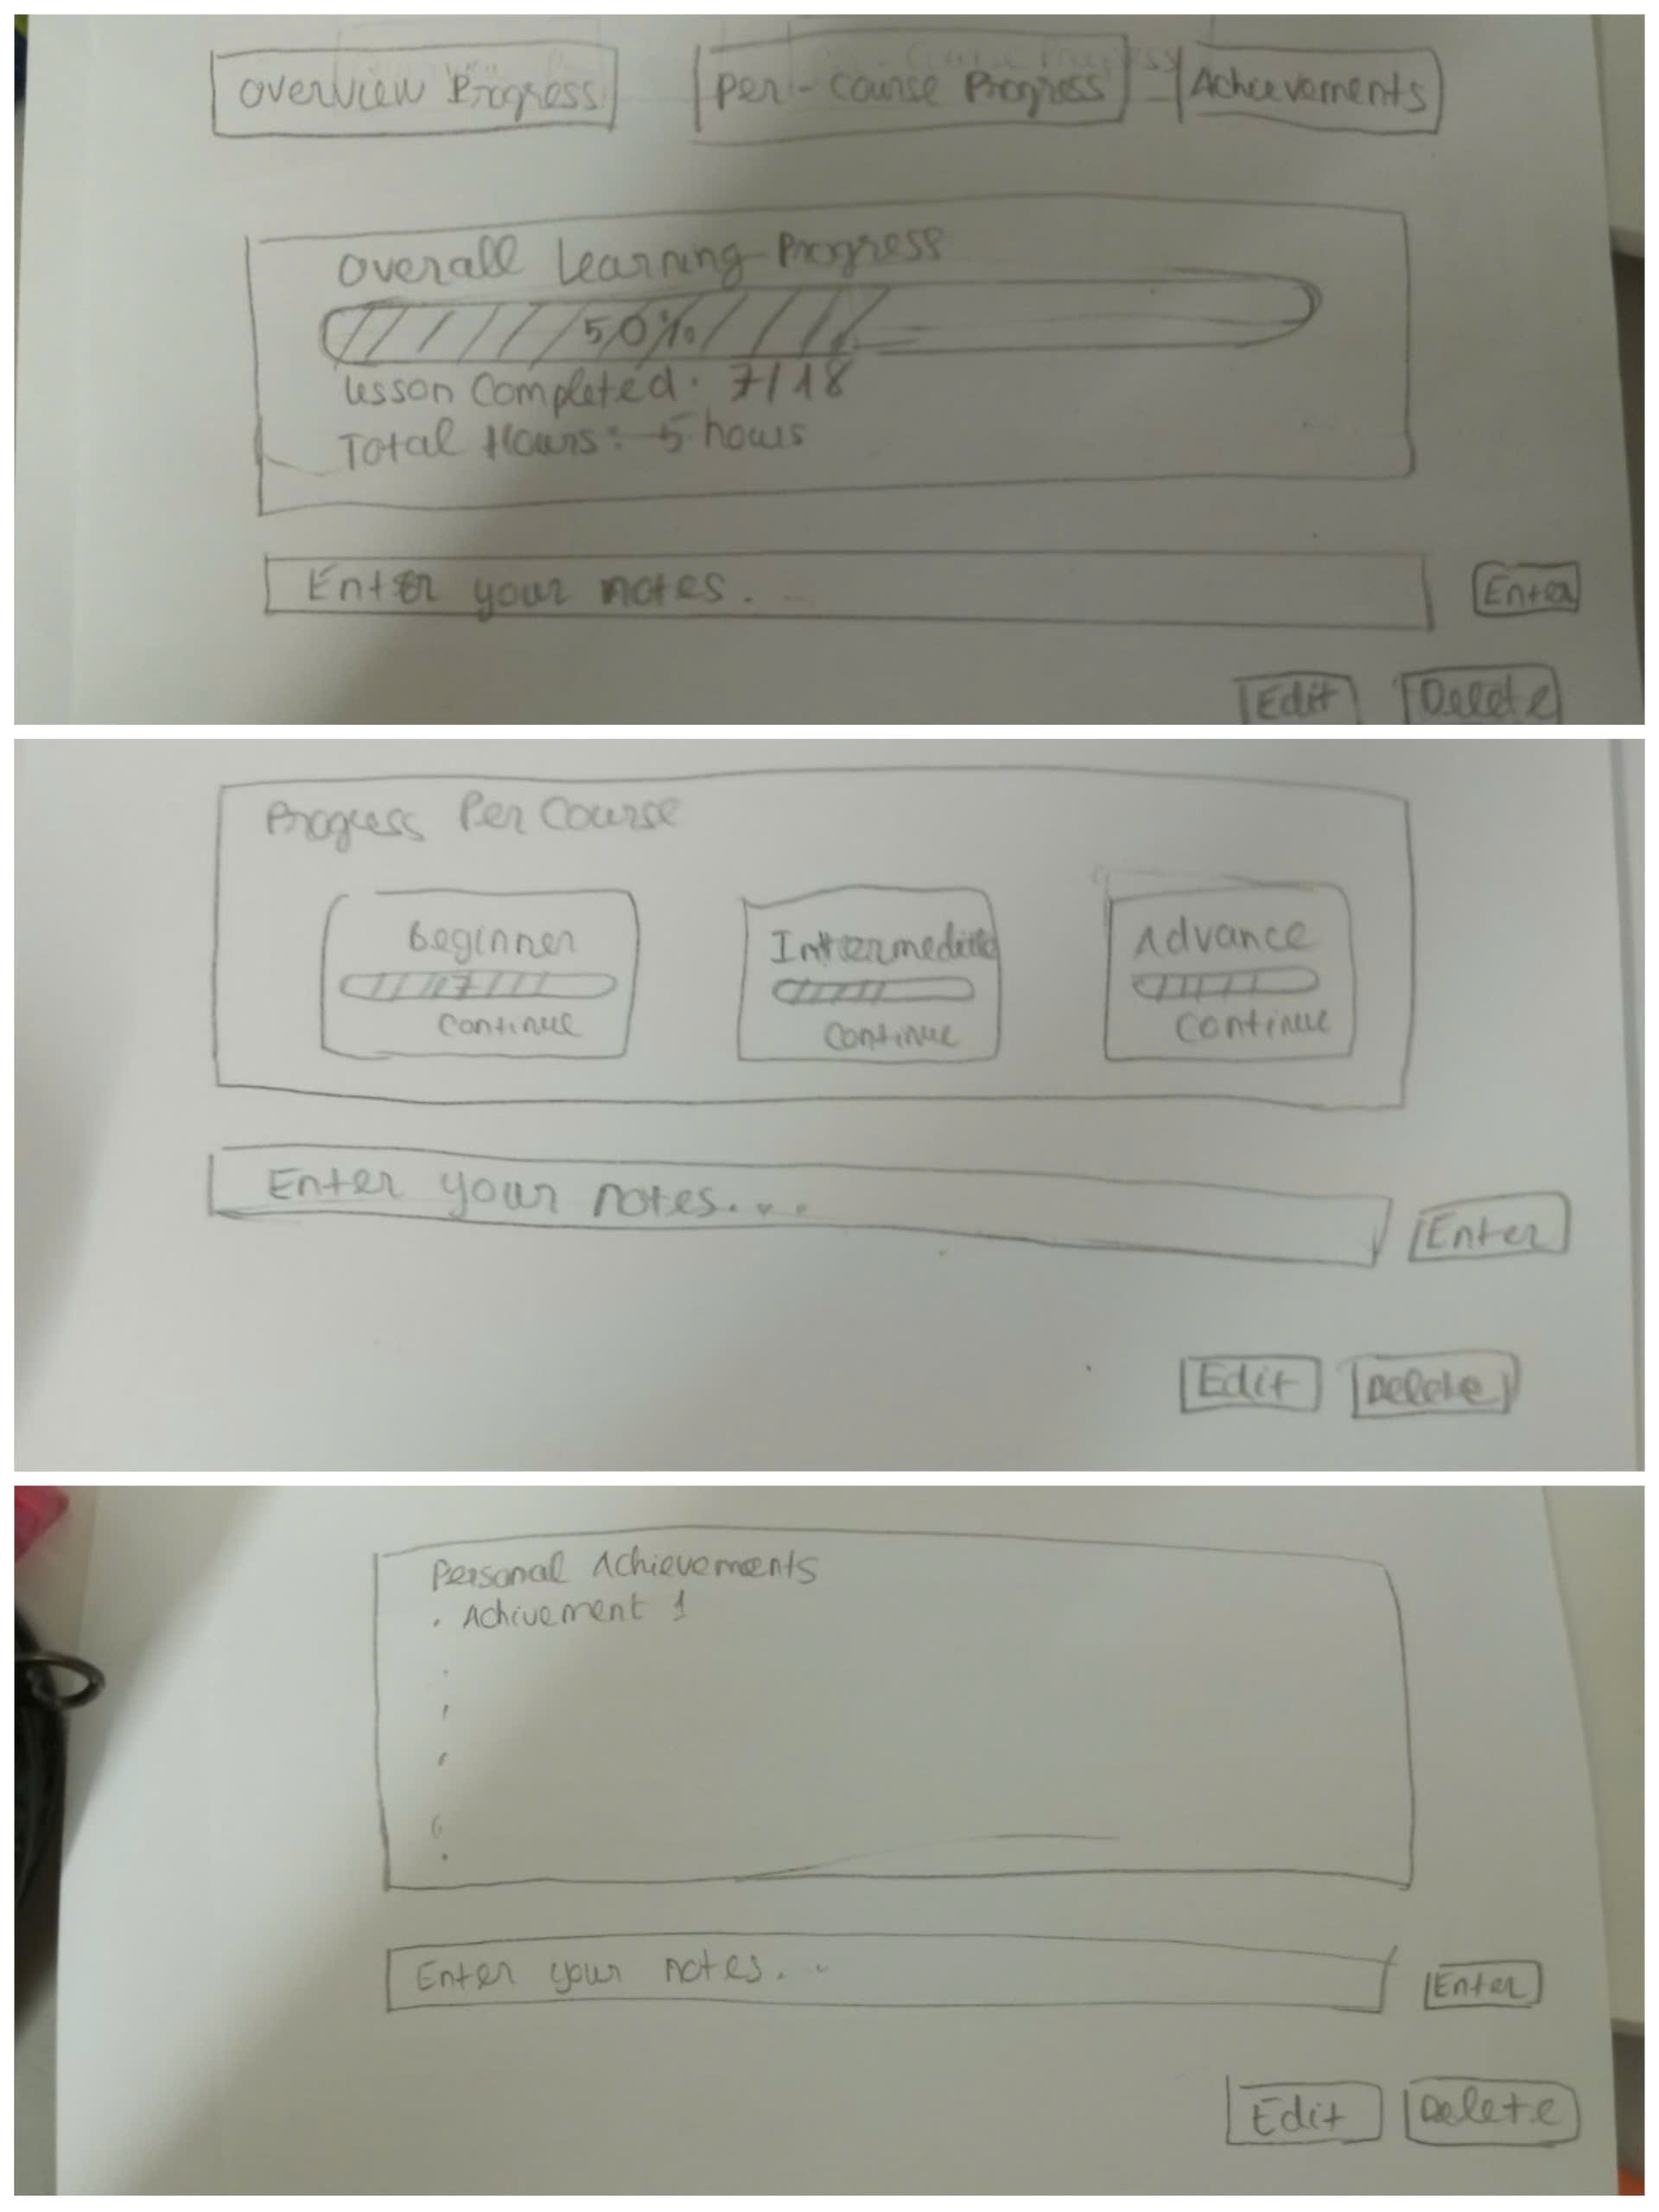 Overview Progress
Per-Course Progress
Achievements
Overall Learning Progress
50%
Lesson Completed: 7/18
Total Hours: 5 hours
Enter your notes...
Enter
Edit
Delete
Progress Per Course
Beginner
Intermediate
Advance
Continue
Continue
Continue
Enter your notes....
Enter
Edit
Delete
Personal Achievements
. Achivement 1
Enter your notes...
Enter
Edit
Delete